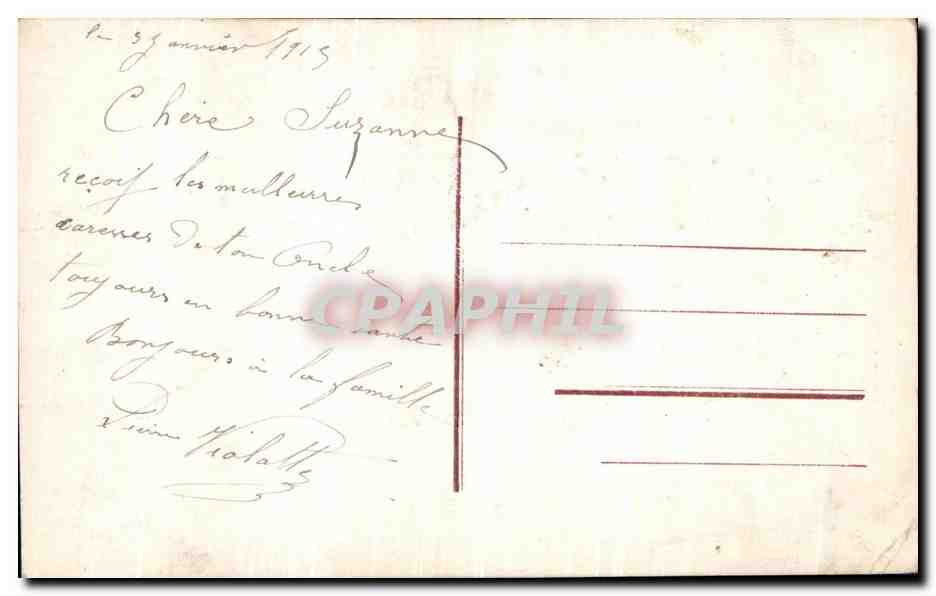 le 3 janvier 1915
Chère Suzanne
reçoit les meilleures
caresses de ton Oncle
toujours en bonne santé
Bonjours à la famille
Pierre Violatte
CPAPHIL